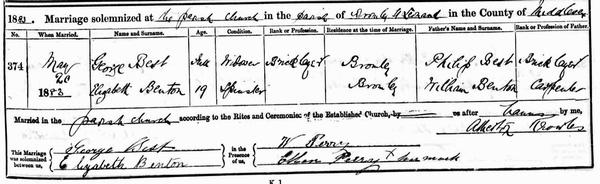 1883. Marriage solemnized at the parish church in the Parish of Bromley St Leonard in the County of Middlesex
No. When Married. Name and Surname. Age. Condition. Rank or Profession. Residence at the time of Marriage. Father's Name and Surname. Rank or Profession of Father.
374 May George Best Full Widower Bricklayer Bromley Philip Best Bricklayer
20
1883 Elizabeth Benton 19 Spinster Bromley William Benton Carpenter
Married in the parish church according to the Rites and Ceremonies of the Established Church, by or after banns by me,
This Marriage was solemnized between us, George Best in the Presence of us, W. Perry
Elizabeth Benton Ellen Perry X her mark